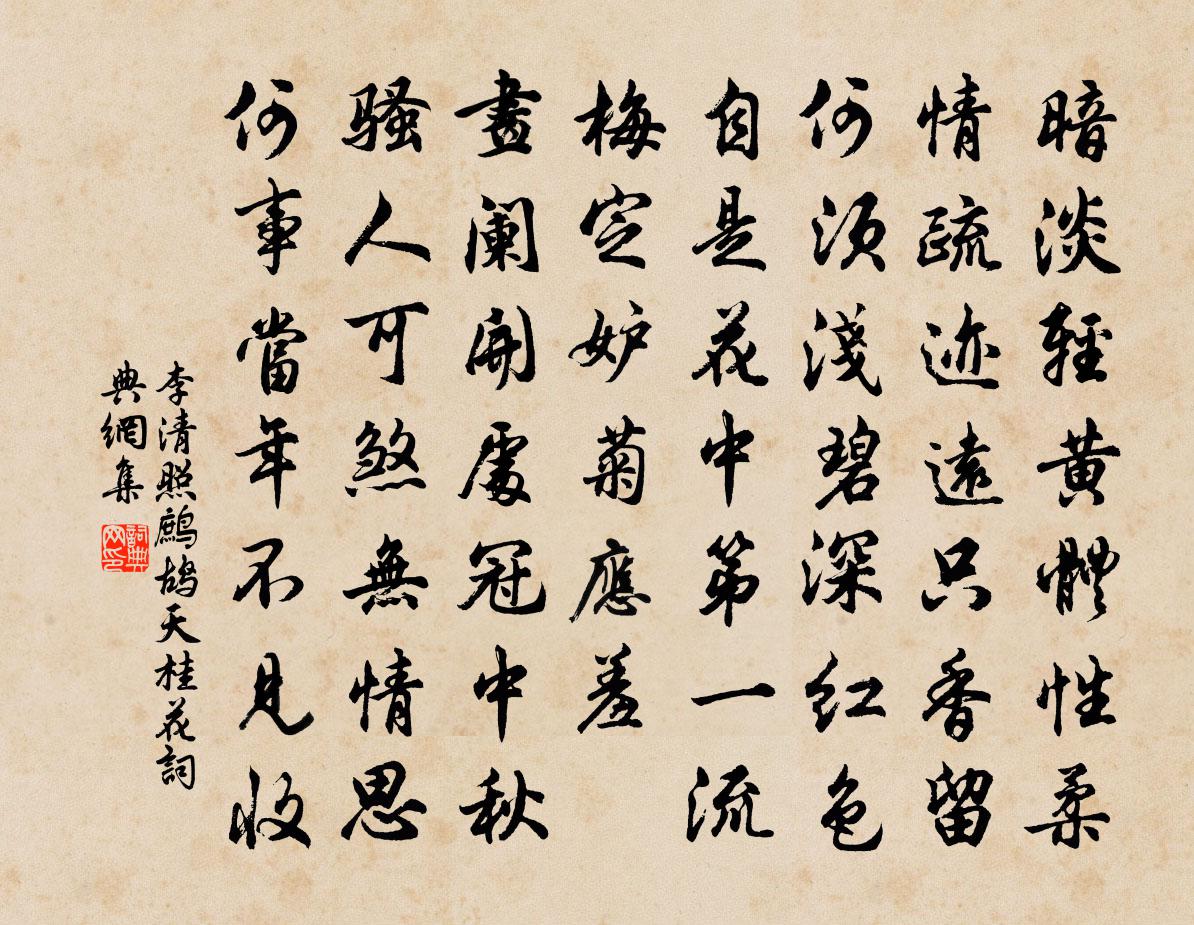 暗淡輕黃體性柔
情疏迹遠只香留
何須淺碧深紅色
自是花中第一流
梅定妒菊應羞
畫闌開處冠中秋
騷人可煞無情思
何事當年不見收
李清照鷓鴣天桂花詞
典網集
詞典
网印